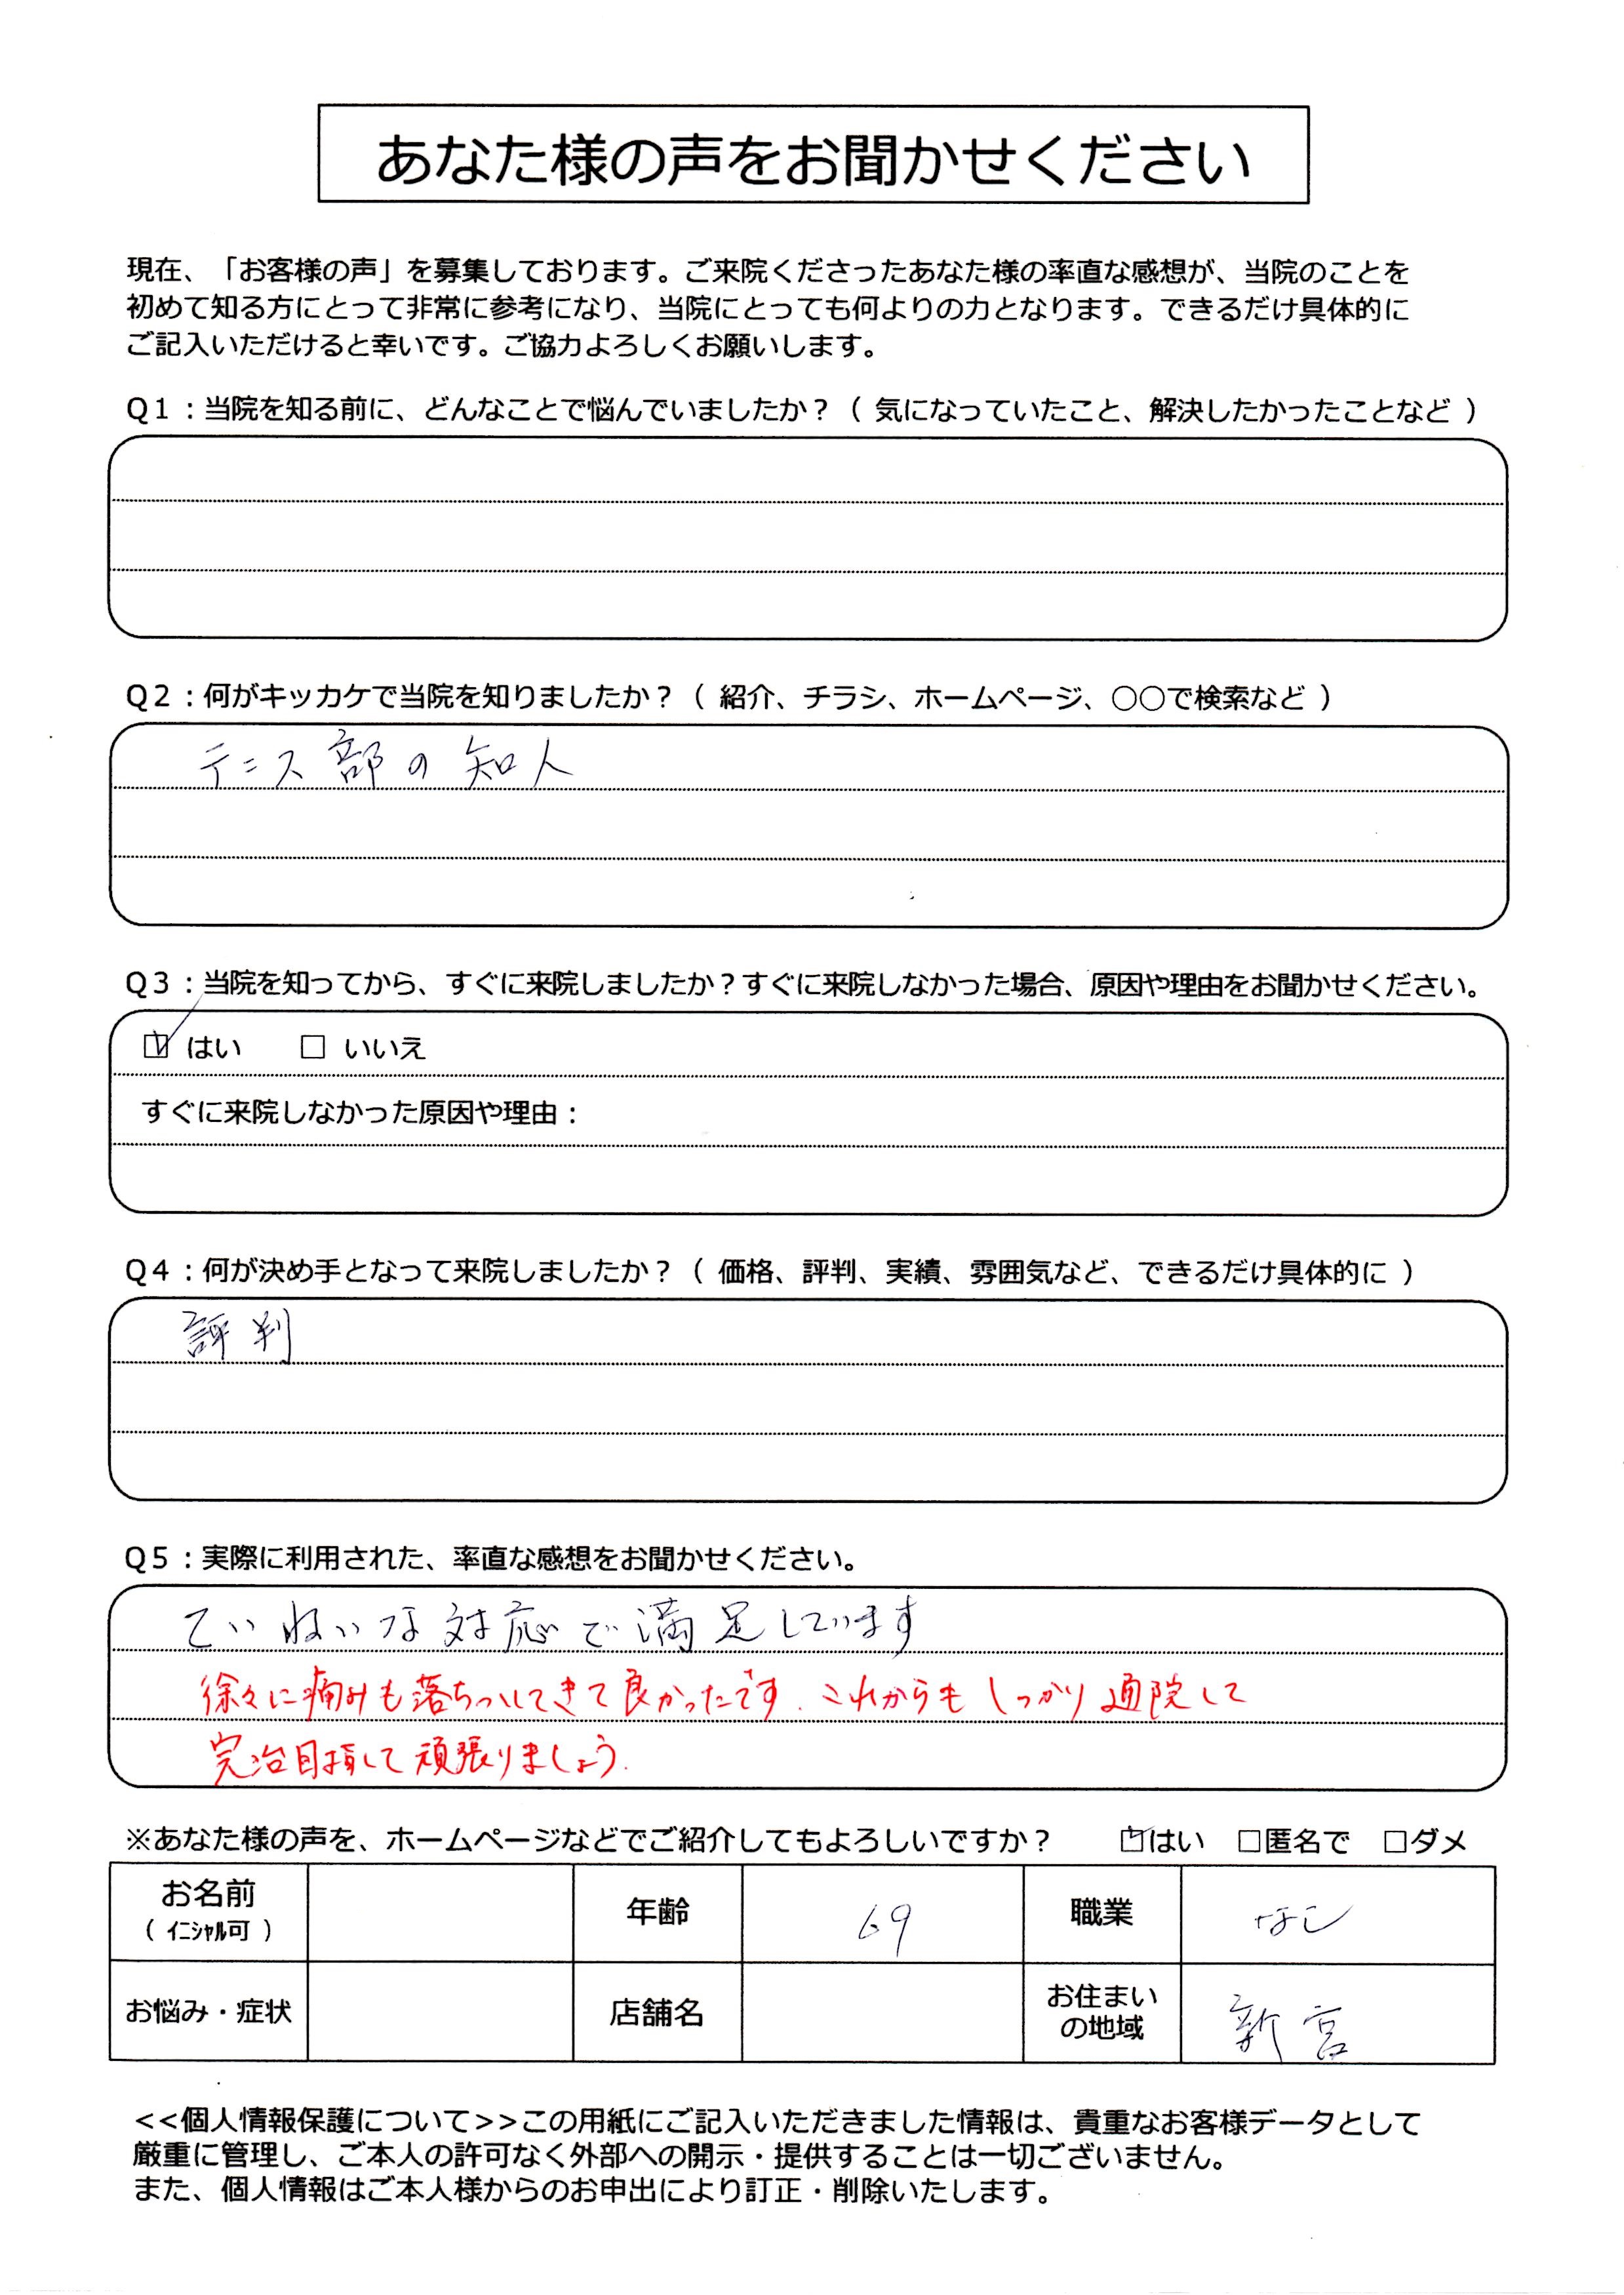 あなた様の声をお聞かせください
現在、「お客様の声」を募集しております。ご来院くださったあなた様の率直な感想が、当院のことを
初めて知る方にとって非常に参考になり、当院にとっても何よりの力となります。できるだけ具体的に
ご記入いただけると幸いです。ご協力よろしくお願いします。
Q1：当院を知る前に、どんなことで悩んでいましたか？（ 気になっていたこと、解決したかったことなど ）
Q2：何がキッカケで当院を知りましたか？（ 紹介、チラシ、ホームページ、○○で検索など ）
テニス部の知人
Q3：当院を知ってから、すぐに来院しましたか？すぐに来院しなかった場合、原因や理由をお聞かせください。
☑ はい □ いいえ
すぐに来院しなかった原因や理由：
Q4：何が決め手となって来院しましたか？（ 価格、評判、実績、雰囲気など、できるだけ具体的に ）
評判
Q5：実際に利用された、率直な感想をお聞かせください。
ていねいな対応で満足しています
徐々に痛みも落ちついてきて良かったです。これからもしっかり通院して
完治目指して頑張りましょう。
※あなた様の声を、ホームページなどでご紹介してもよろしいですか？ ☑はい □匿名で □ダメ
お名前 年齢 69 職業 なし
（ ｲﾆｼｬﾙ可 ）
お悩み・症状 店舗名 お住まいの地域 新宮
<<個人情報保護について>>この用紙にご記入いただきました情報は、貴重なお客様データとして
厳重に管理し、ご本人の許可なく外部への開示・提供することは一切ございません。
また、個人情報はご本人様からのお申出により訂正・削除いたします。